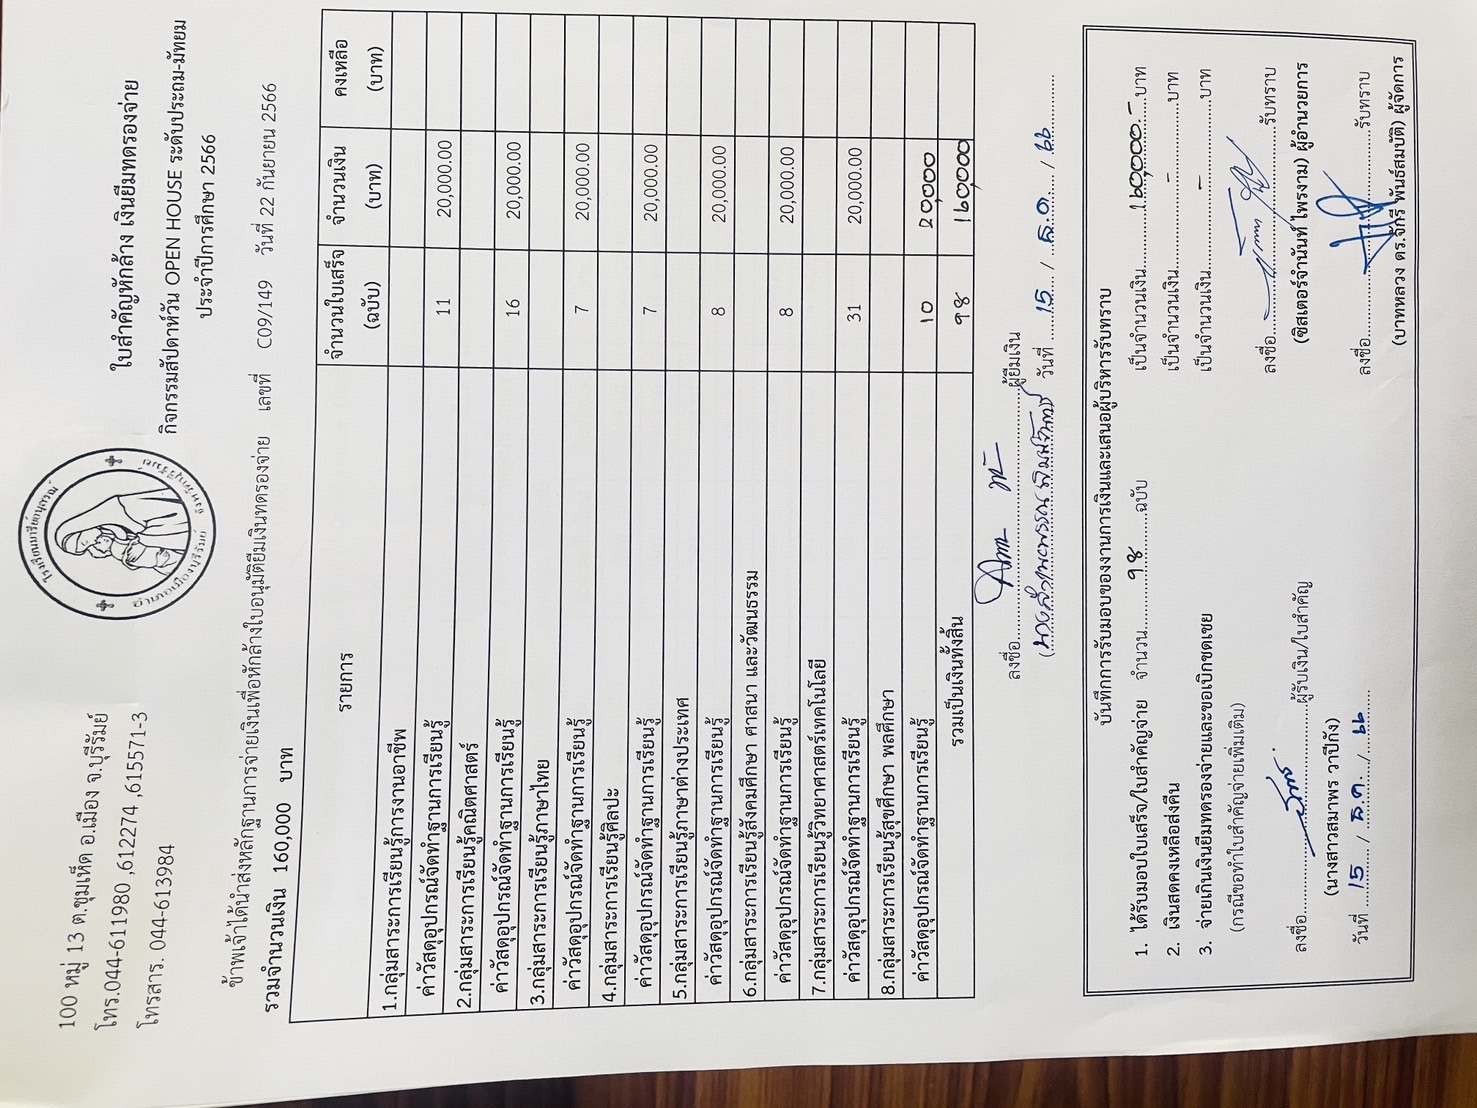 โรงเรียนมารีย์อนุสรณ์
อำเภอเมืองบุรีรัมย์ จังหวัดบุรีรัมย์
100 หมู่ 13 ต.ชุมเห็ด อ.เมือง จ.บุรีรัมย์
โทร.044-611980 ,612274 ,615571-3
โทรสาร. 044-613984
ใบสำคัญหักล้าง เงินยืมทดรองจ่าย
กิจกรรมสัปดาห์วัน OPEN HOUSE ระดับประถม-มัทยม
ประจำปีการศึกษา 2566
ข้าพเจ้าได้นำส่งหลักฐานการจ่ายเงินเพื่อหักล้างใบอนุมัติยืมเงินทดรองจ่าย เลขที่ C09/149 วันที่ 22 กันยายน 2566
รวมจำนวนเงิน 160,000 บาท
รายการ จำนวนใบเสร็จ (ฉบับ) จำนวนเงิน (บาท) คงเหลือ (บาท)
1.กลุ่มสาระการเรียนรู้การงานอาชีพ
ค่าวัสดุอุปกรณ์จัดทำฐานการเรียนรู้ 11 20,000.00
2.กลุ่มสาระการเรียนรู้คณิตศาสตร์
ค่าวัสดุอุปกรณ์จัดทำฐานการเรียนรู้ 16 20,000.00
3.กลุ่มสาระการเรียนรู้ภาษาไทย
ค่าวัสดุอุปกรณ์จัดทำฐานการเรียนรู้ 7 20,000.00
4.กลุ่มสาระการเรียนรู้ศิลปะ
ค่าวัสดุอุปกรณ์จัดทำฐานการเรียนรู้ 7 20,000.00
5.กลุ่มสาระการเรียนรู้ภาษาต่างประเทศ
ค่าวัสดุอุปกรณ์จัดทำฐานการเรียนรู้ 8 20,000.00
6.กลุ่มสาระการเรียนรู้สังคมศึกษา ศาสนา และวัฒนธรรม
ค่าวัสดุอุปกรณ์จัดทำฐานการเรียนรู้ 8 20,000.00
7.กลุ่มสาระการเรียนรู้วิทยาศาสตร์เทคโนโลยี
ค่าวัสดุอุปกรณ์จัดทำฐานการเรียนรู้ 31 20,000.00
8.กลุ่มสาระการเรียนรู้สุขศึกษา พลศึกษา
ค่าวัสดุอุปกรณ์จัดทำฐานการเรียนรู้ 10 20,000
รวมเป็นเงินทั้งสิ้น 98 160,000
ลงชื่อ....................ผู้ยืมเงิน
วันที่ 15 / ธ.ค. / 66
บันทึกการรับมอบของงานการเงินและเสนอผู้บริหารรับทราบ
1. ได้รับมอบใบเสร็จ/ใบสำคัญจ่าย จำนวน 98 ฉบับ เป็นจำนวนเงิน 160,000.- บาท
2. เงินสดคงเหลือส่งคืน เป็นจำนวนเงิน - บาท
3. จ่ายเกินเงินยืมทดรองจ่ายและขอเบิกชดเชย เป็นจำนวนเงิน - บาท
(กรณีขอทำใบสำคัญจ่ายเพิ่มเติม)
ลงชื่อ....................รับทราบ
(ซิสเตอร์จำนันท์ ไพรงาม) ผู้อำนวยการ
ลงชื่อ....................ผู้รับเงิน/ใบสำคัญ
(นางสาวสมาพร วาปีกัง)
วันที่ 15 / ธ.ค. / 66
ลงชื่อ....................รับทราบ
(บาทหลวง ดร.จักรี พันธ์สมบัติ) ผู้จัดการ